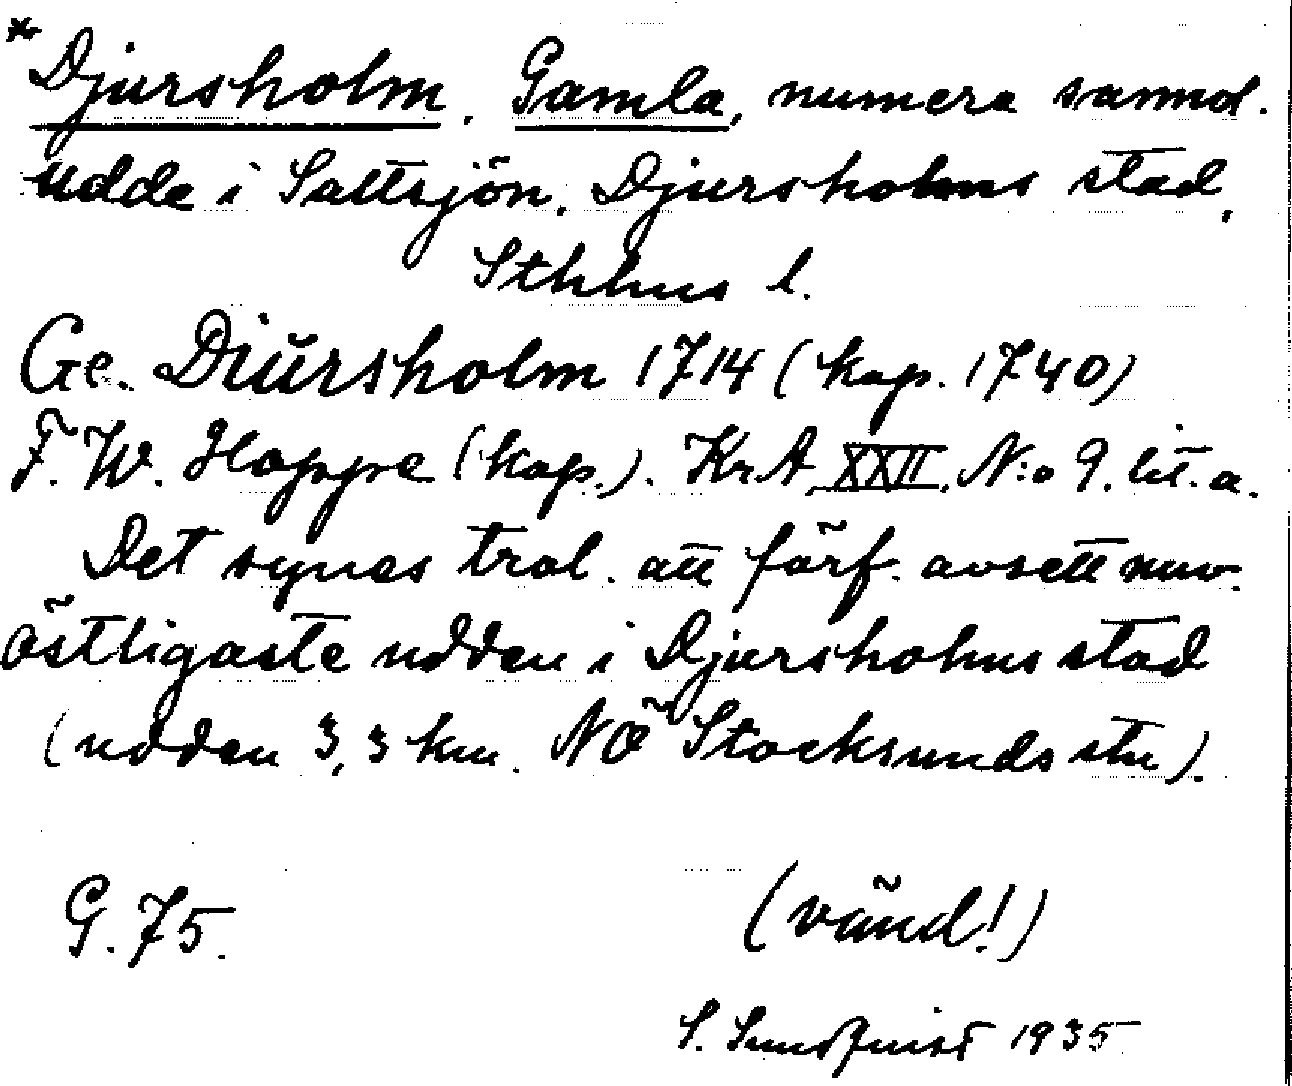 *Djursholm, Gamla, numera sannol.
udde i Saltsjön, Djursholms stad,
Sthlms l.
Ge. Diŭrsholm 1714 (kop. 1740)
F. W. Hoppe (kop.). KrA, XXII, N:o 9. lit. a.
Det synes trol. att förf. avsett nuv.
östligaste udden i Djursholms stad
(udden 3,3 km. NÖ Stocksunds stn).
G. 75.
(vänd!)
S. Sundquist 1935